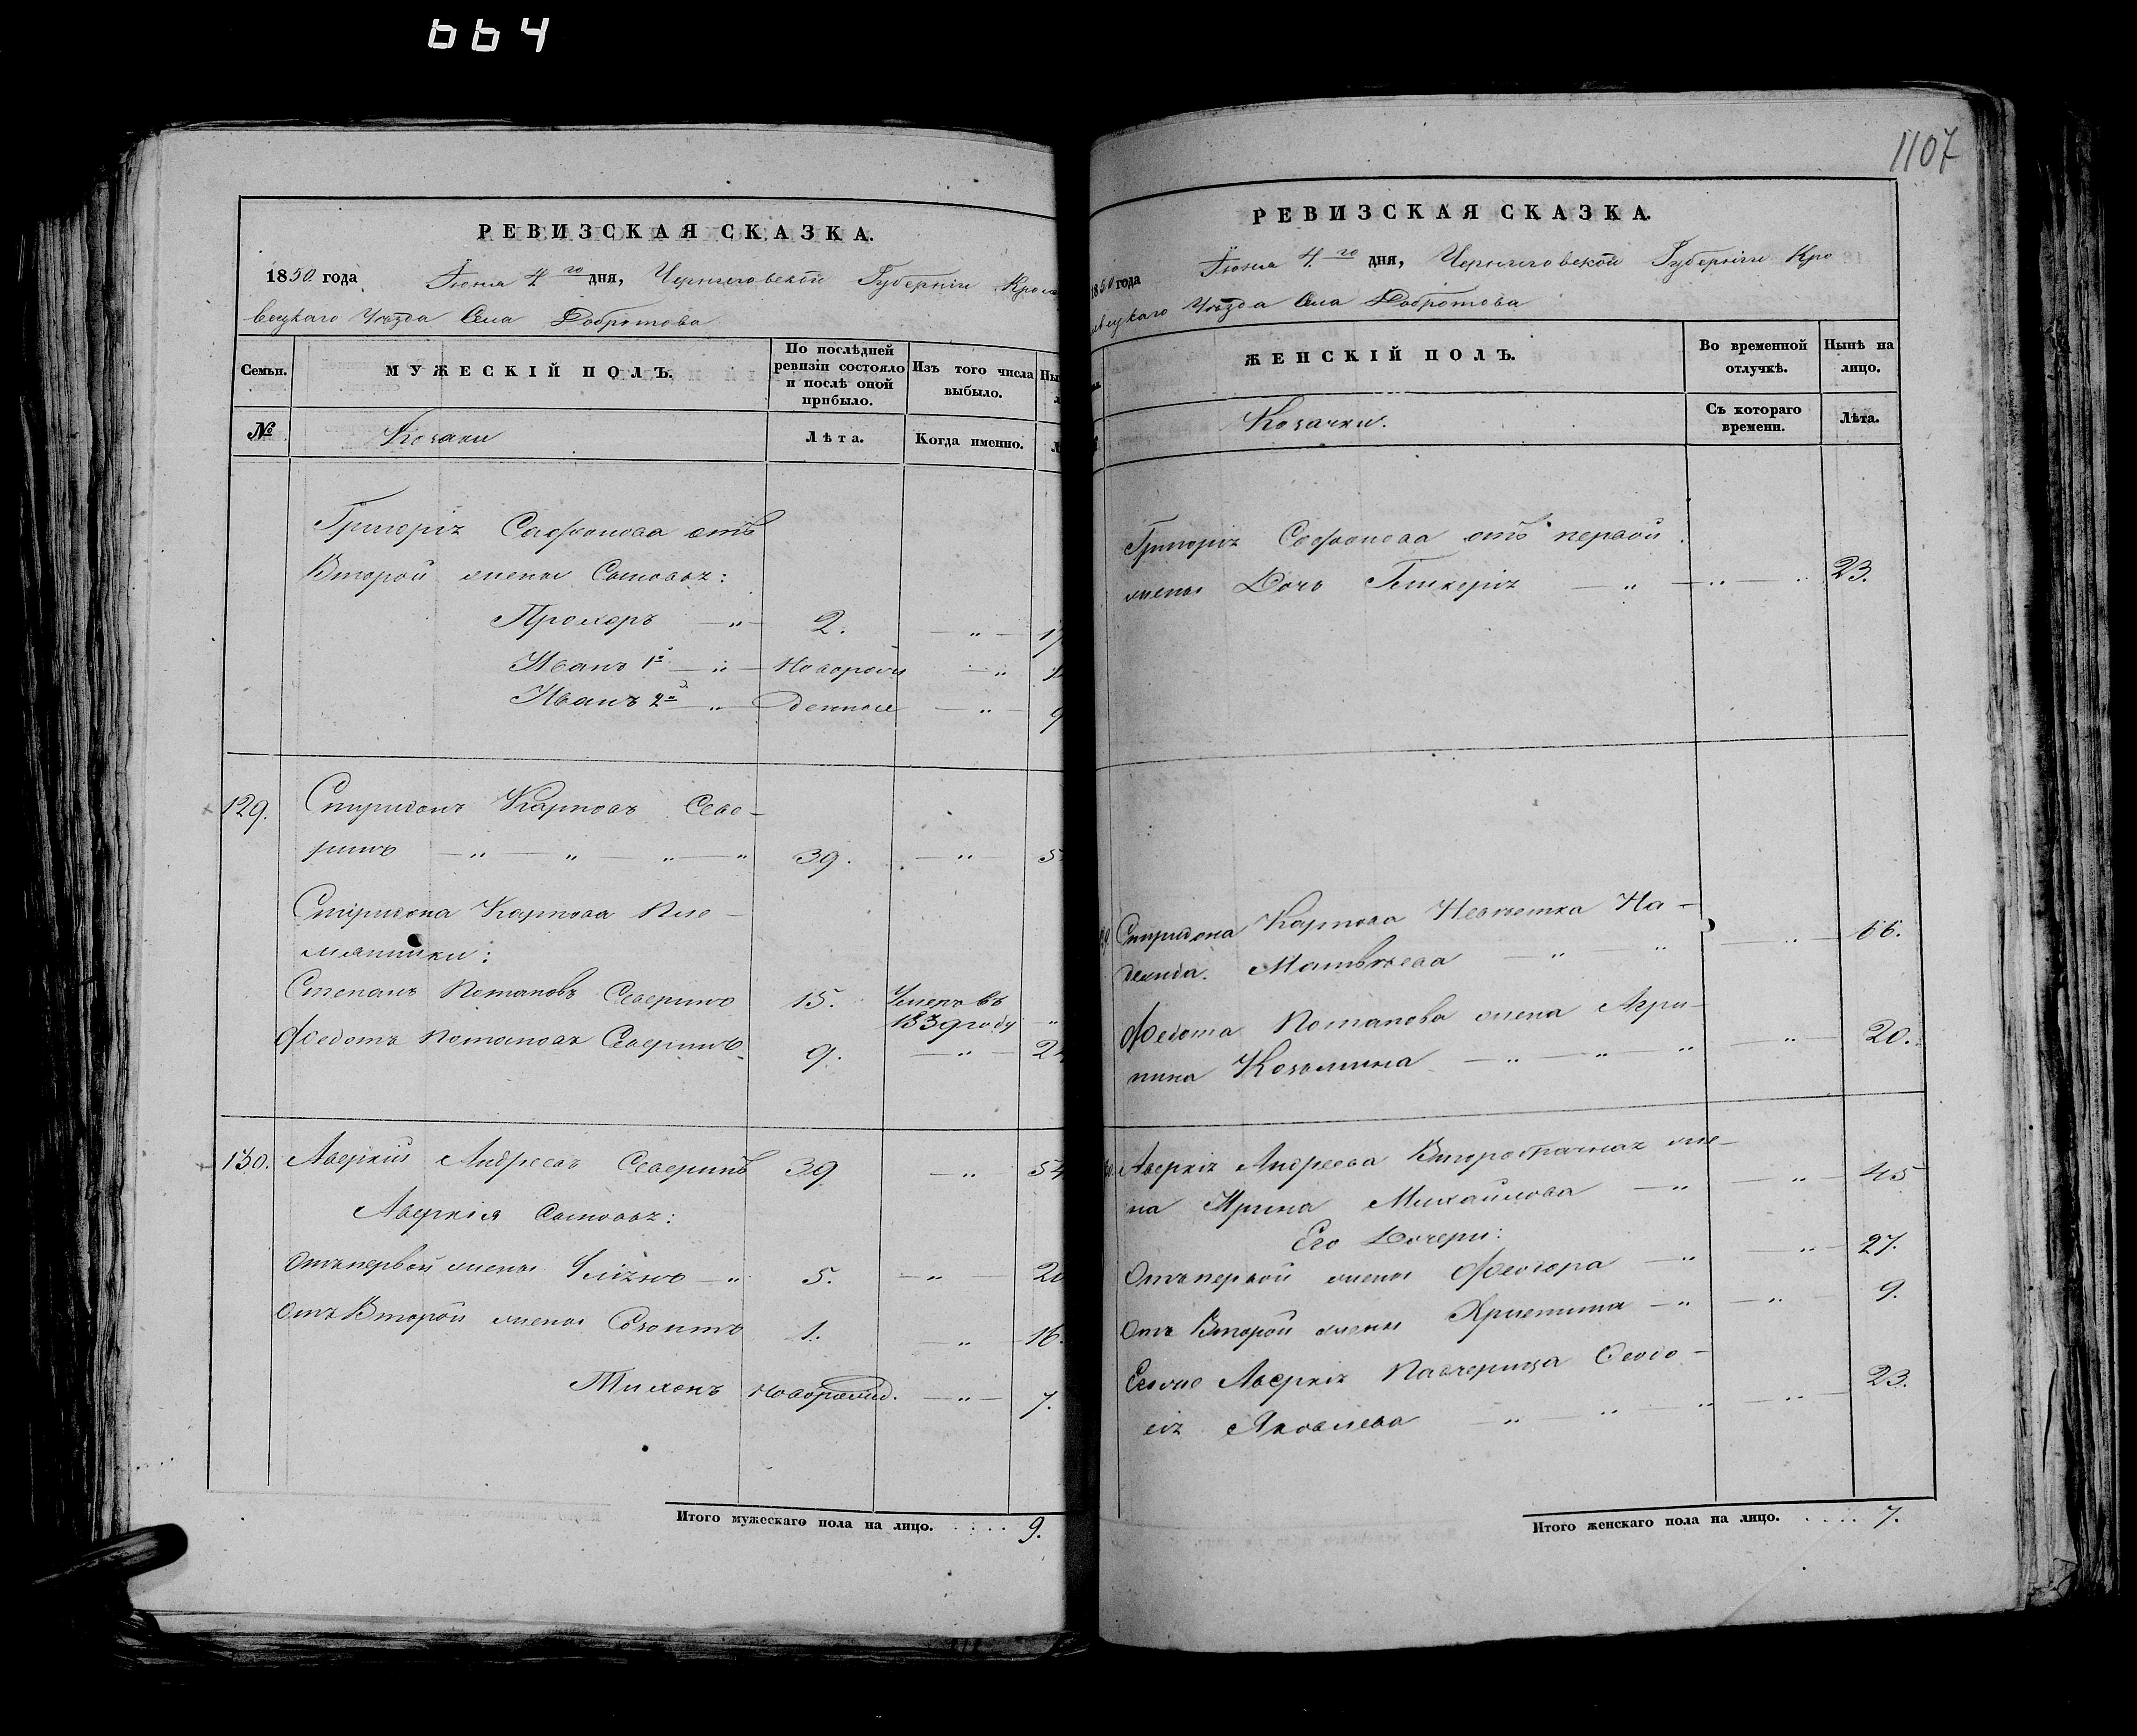 664
РЕВИЗСКАЯ СКАЗКА.
1850. года Іюня 4го дня, Черниговской Губерніи Кроле
вецкаго Уѣзда Села Добротова
Семьи.
МУЖЕСКІЙ ПОЛЪ.
По послѣдней ревизіи состояло и послѣ оной прибыло.
Изъ того числа выбыло.
№
Козаки
Лѣта.
Когда именно.
Григорія Сафронова отъ
Второй жены Сыновья:
Прохоръ 2. 17
Иванъ 1й Новорож
Иванъ 2й денные 9
129. Спиридонъ Карповъ Севе-
ринъ 39. 5
Спиридона Карпова Пле-
мянники:
Степанъ Потаповъ Северинъ 15. Умеръ въ
1839 году
Федотъ Потаповъ Северинъ 9. 24
130. Аверкій Андреевъ Северинъ 39 54
Аверкія Сыновья:
Отъ первой жены 5. 20
Отъ Второй жены Созонтъ 1. 16.
Тихонъ новорожд. 7.
Итого мужескаго пола на лицо. . . . . 9.
1107
РЕВИЗСКАЯ СКАЗКА.
1850 года Іюня 4го дня, Черниговской Губерніи Кро
левецкаго Уѣзда Села Добротова
ЖЕНСКІЙ ПОЛЪ.
Во временной отлучкѣ.
Нынѣ на лицо.
Козачки.
Съ котораго времени.
Лѣта.
Григорія Сафронова отъ первой
жены Дочь Гликерія 23.
Спиридона Карпова Невѣстка На-
Матвѣева 66.
Федота Потапова жена Агри-
пина Козьмина 20.
Аверкія Андреева Второбрачная же-
на Ирина Михайлова 45
Его Дочери:
Отъ первой жены Феодора 27.
Отъ Второй жены Христина 9.
Его же Аверкія Падчерица Феодо-
сія Яковлева 23.
Итого женскаго пола на лицо. . . . . 7.